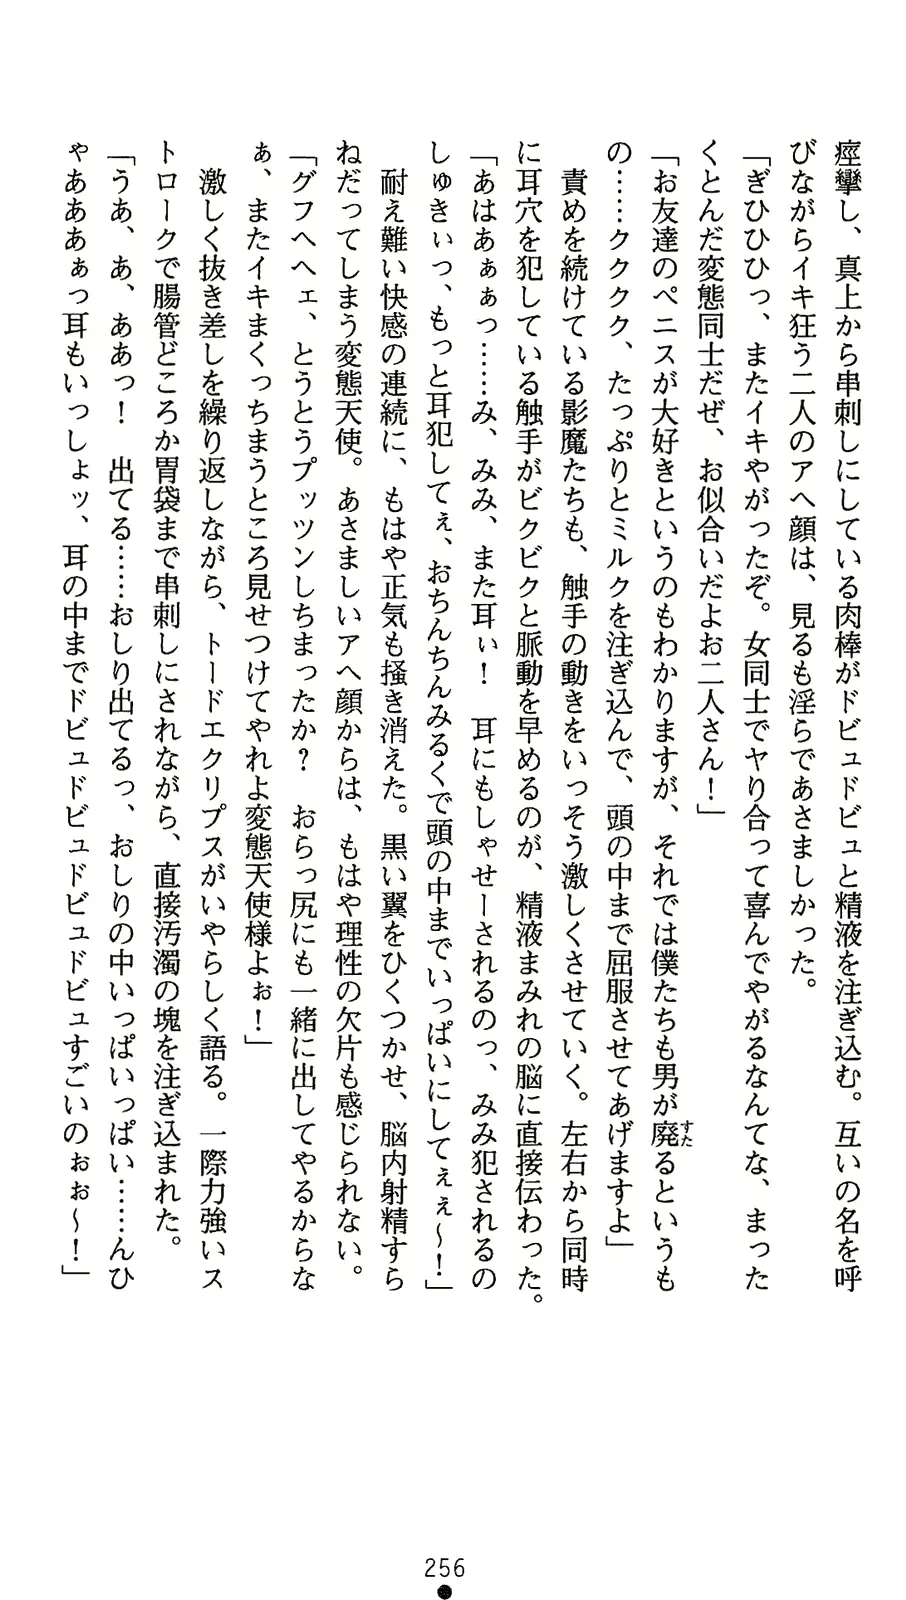 痙攣し、真上から串刺しにしている肉棒がドビュドビュと精液を注ぎ込む。互いの名を呼
びながらイキ狂う二人のアヘ顔は、見るも淫らであさましかった。
「ぎひひひっ、またイキやがったぞ。女同士でヤり合って喜んでやがるなんてな、まった
くとんだ変態同士だぜ、お似合いだよお二人さん！」
「お友達のペニスが大好きというのもわかりますが、それでは僕たちも男が廃るというも
の……クククク、たっぷりとミルクを注ぎ込んで、頭の中まで屈服させてあげますよ」
　責めを続けている影魔たちも、触手の動きをいっそう激しくさせていく。左右から同時
に耳穴を犯している触手がビクビクと脈動を早めるのが、精液まみれの脳に直接伝わった。
「あはあぁぁっ……み、みみ、また耳ぃ！　耳にもしゃせーされるのっ、みみ犯されるの
しゅきぃっ、もっと耳犯してぇ、おちんちんみるくで頭の中までいっぱいにしてぇぇ～！」
　耐え難い快感の連続に、もはや正気も掻き消えた。黒い翼をひくつかせ、脳内射精すら
ねだってしまう変態天使。あさましいアヘ顔からは、もはや理性の欠片も感じられない。
「グフヘヘェ、とうとうプッツンしちまったか？　おらっ尻にも一緒に出してやるからな
ぁ、またイキまくっちまうところ見せつけてやれよ変態天使様よぉ！」
　激しく抜き差しを繰り返しながら、トードエクリプスがいやらしく語る。一際力強いス
トロークで腸管どころか胃袋まで串刺しにされながら、直接汚濁の塊を注ぎ込まれた。
「うあ、あ、ああっ！　出てる……おしり出てるっ、おしりの中いっぱいいっぱい……んひ
ゃあああぁっ耳もいっしょッ、耳の中までドビュドビュドビュドビュすごいのぉぉ～！」
すた
256